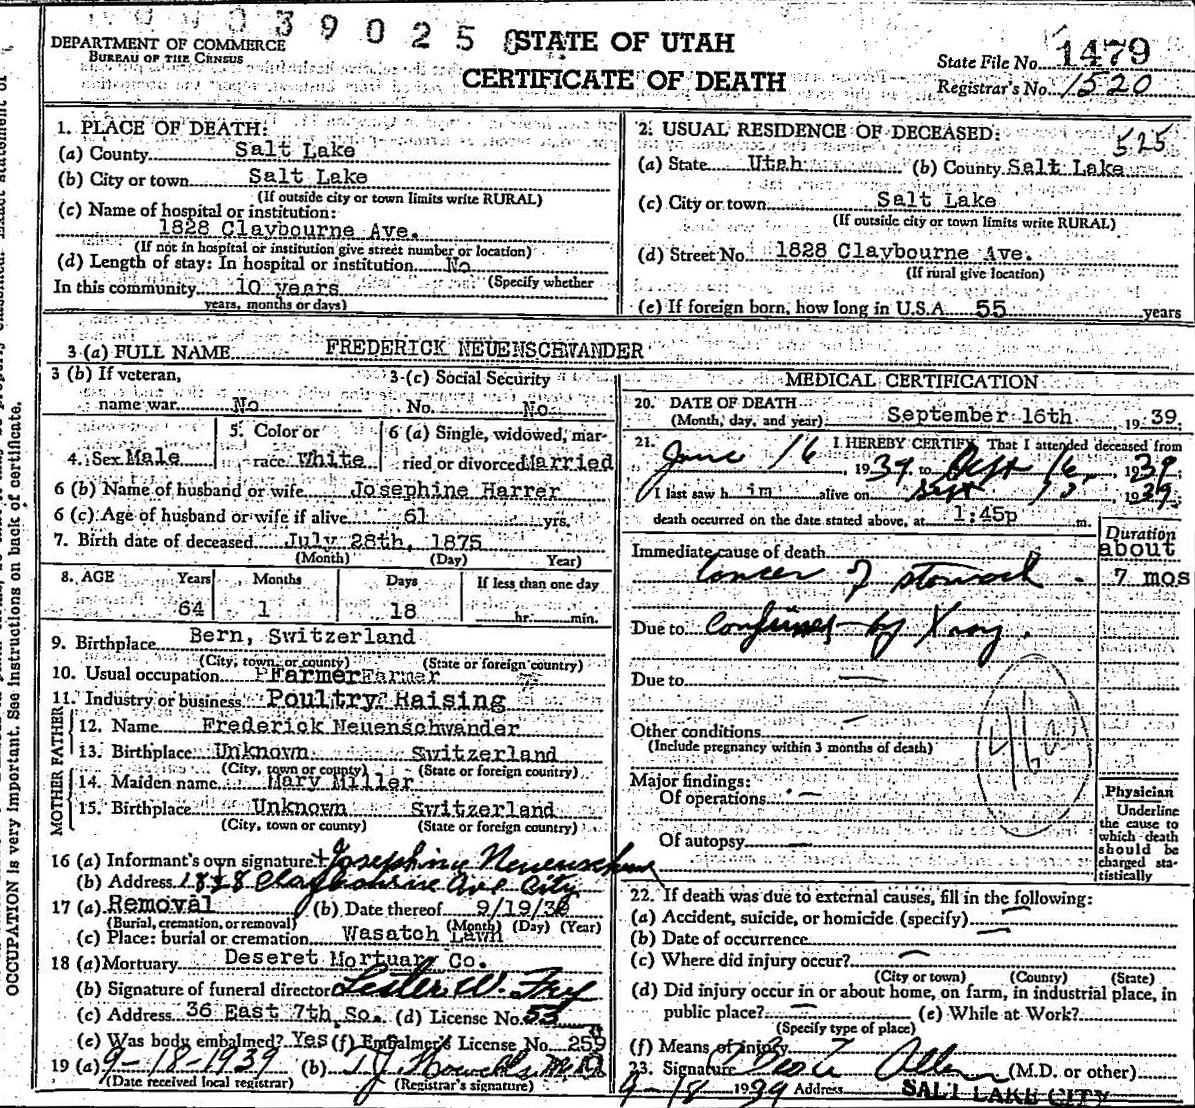 39025
DEPARTMENT OF COMMERCE
BUREAU OF THE CENSUS
STATE OF UTAH
CERTIFICATE OF DEATH
State File No. 1479
Registrar's No. 1520
1. PLACE OF DEATH:
(a) County Salt Lake
(b) City or town Salt Lake
(If outside city or town limits write RURAL)
(c) Name of hospital or institution:
1828 Claybourne Ave.
(If not in hospital or institution give street number or location)
(d) Length of stay: In hospital or institution No
(Specify whether
In this community 10 years
years, months or days)
2. USUAL RESIDENCE OF DECEASED:
525
(a) State Utah (b) County Salt Lake
(c) City or town Salt Lake
(If outside city or town limits write RURAL)
(d) Street No. 1828 Claybourne Ave.
(If rural give location)
(e) If foreign born, how long in U.S.A. 55 years
3 (a) FULL NAME FREDERICK NEUENSCHWANDER
3 (b) If veteran,
name war No
3 (c) Social Security
No. No
4. Sex Male
5. Color or
race White
6 (a) Single, widowed, mar-
ried or divorced Married
6 (b) Name of husband or wife Josephine Harrer
6 (c) Age of husband or wife if alive 61 yrs.
7. Birth date of deceased July 28th, 1875
(Month) (Day) Year)
8. AGE Years Months Days If less than one day
64 1 18 hr. min.
9. Birthplace Bern, Switzerland
(City, town, or county) (State or foreign country)
10. Usual occupation Farmer Farmer
11. Industry or business Poultry Raising
FATHER
12. Name Frederick Neuenschwander
13. Birthplace Unknown Switzerland
(City, town or county) (State or foreign country)
MOTHER
14. Maiden name Mary Miller
15. Birthplace Unknown Switzerland
(City, town or county) (State or foreign country)
16 (a) Informant's own signature Josephine Neuenschwan
(b) Address 1828 Claybourne Ave City
17 (a) Removal (b) Date thereof 9/19/38
(Burial, cremation, or removal) (Month) (Day) (Year)
(c) Place: burial or cremation Wasatch Lawn
18 (a) Mortuary Deseret Mortuary Co.
(b) Signature of funeral director Lester W. Fry
(c) Address 36 East 7th So. (d) License No. 53
(e) Was body embalmed? Yes (f) Embalmer's License No. 259
19 (a) 9-18-1939 (b) T. J. Howells M.D.
(Date received local registrar) (Registrar's signature)
MEDICAL CERTIFICATION
20. DATE OF DEATH
(Month, day, and year) September 16th 1939
21. I HEREBY CERTIFY, That I attended deceased from
June 16, 1939 to Sept 16, 1939
I last saw him alive on Sept 15 1939
death occurred on the date stated above, at 1:45p m.
Duration
Immediate cause of death about
Cancer of stomach 7 mos
Due to Confirmed by Xray.
Due to
Other conditions
(Include pregnancy within 3 months of death)
Major findings:
Of operations
Of autopsy
Physician
Underline
the cause to
which death
should be
charged sta-
tistically
22. If death was due to external causes, fill in the following:
(a) Accident, suicide, or homicide (specify)
(b) Date of occurrence
(c) Where did injury occur?
(City or town) (County) (State)
(d) Did injury occur in or about home, on farm, in industrial place, in
public place? (e) While at Work?
(Specify type of place)
(f) Means of injury
23. Signature Allen (M.D. or other)
9-18 1939 Address SALT LAKE CITY
OCCUPATION is very important. See instructions on back of certificate.